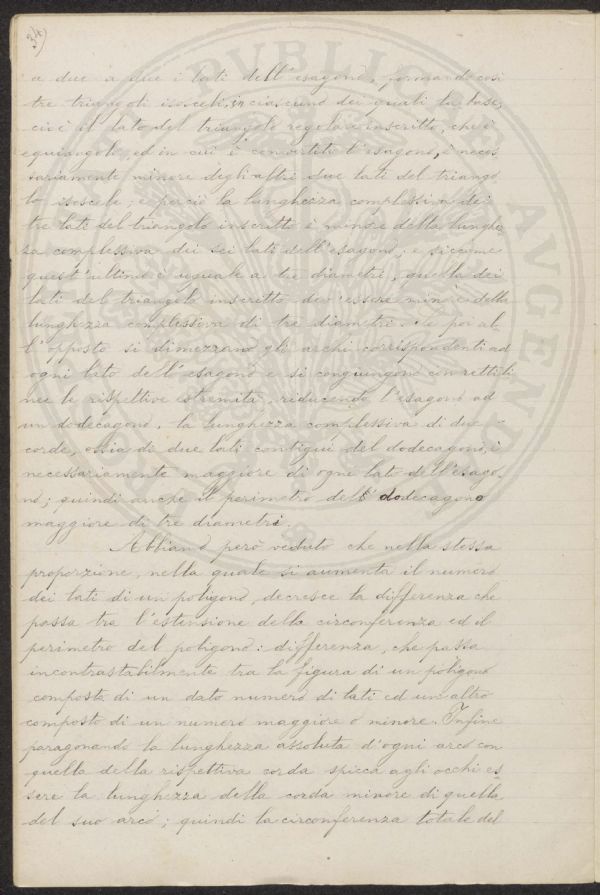 34)
a due a due i lati dell'esagono, formando così
tre triangoli isosceli, in ciascuno dei quali la base,
cioè il lato del triangolo regolare inscritto, che è
equiangolo, ed in cui è convertito l'esagono, è neces
sariamente minore degli altri due lati del triango
lo isoscele; e perciò la lunghezza complessiva dei
tre lati del triangolo inscritto è minore della lunghez
za complessiva dei sei lati dell'esagono; e siccome
quest'ultimo è uguale a tre diametri, quella dei
lati del triangolo inscritto dev'essere minore della
lunghezza complessiva di tre diametri. Se poi al
l'opposto si dimezzano gli archi corrispondenti ad
ogni lato dell'esagono e si congiungono con retti li
nee le rispettive estremità, riducendo l'esagono ad
un dodecagono, la lunghezza complessiva di due
corde, ossia di due lati contigui del dodecagono, è
necessariamente maggiore di ogni lato dell'esago
no; quindi anche il perimetro del dodecagono
maggiore di tre diametri.
Abbiamo però veduto che nella stessa
proporzione, nella quale si aumenta il numero
dei lati di un poligono, decresce la differenza che
passa tra l'estensione della circonferenza ed il
perimetro del poligono: differenza, che passa
incontrastabilmente tra la figura di un poligono
composta di un dato numero di lati ed un altro
composto di un numero maggiore o minore. Infine
paragonando la lunghezza assoluta d'ogni arco con
quella della rispettiva corda spicca agli occhi es
sere la lunghezza della corda minore di quella
del suo arco; quindi la circonferenza totale del
PVBLICA
AVGENDO